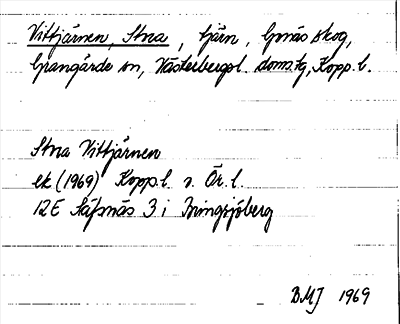 Vittjärnen, Stora, tjärn, Gonäs skog,
Grangärde sn, Västerbergsl. doms.tg, Kopp.l.
Stora Vittjärnen
ek (1969) Kopp.l o. Ör.l.
12E Säfsnäs 3 i Bringsjöberg
BMJ 1969